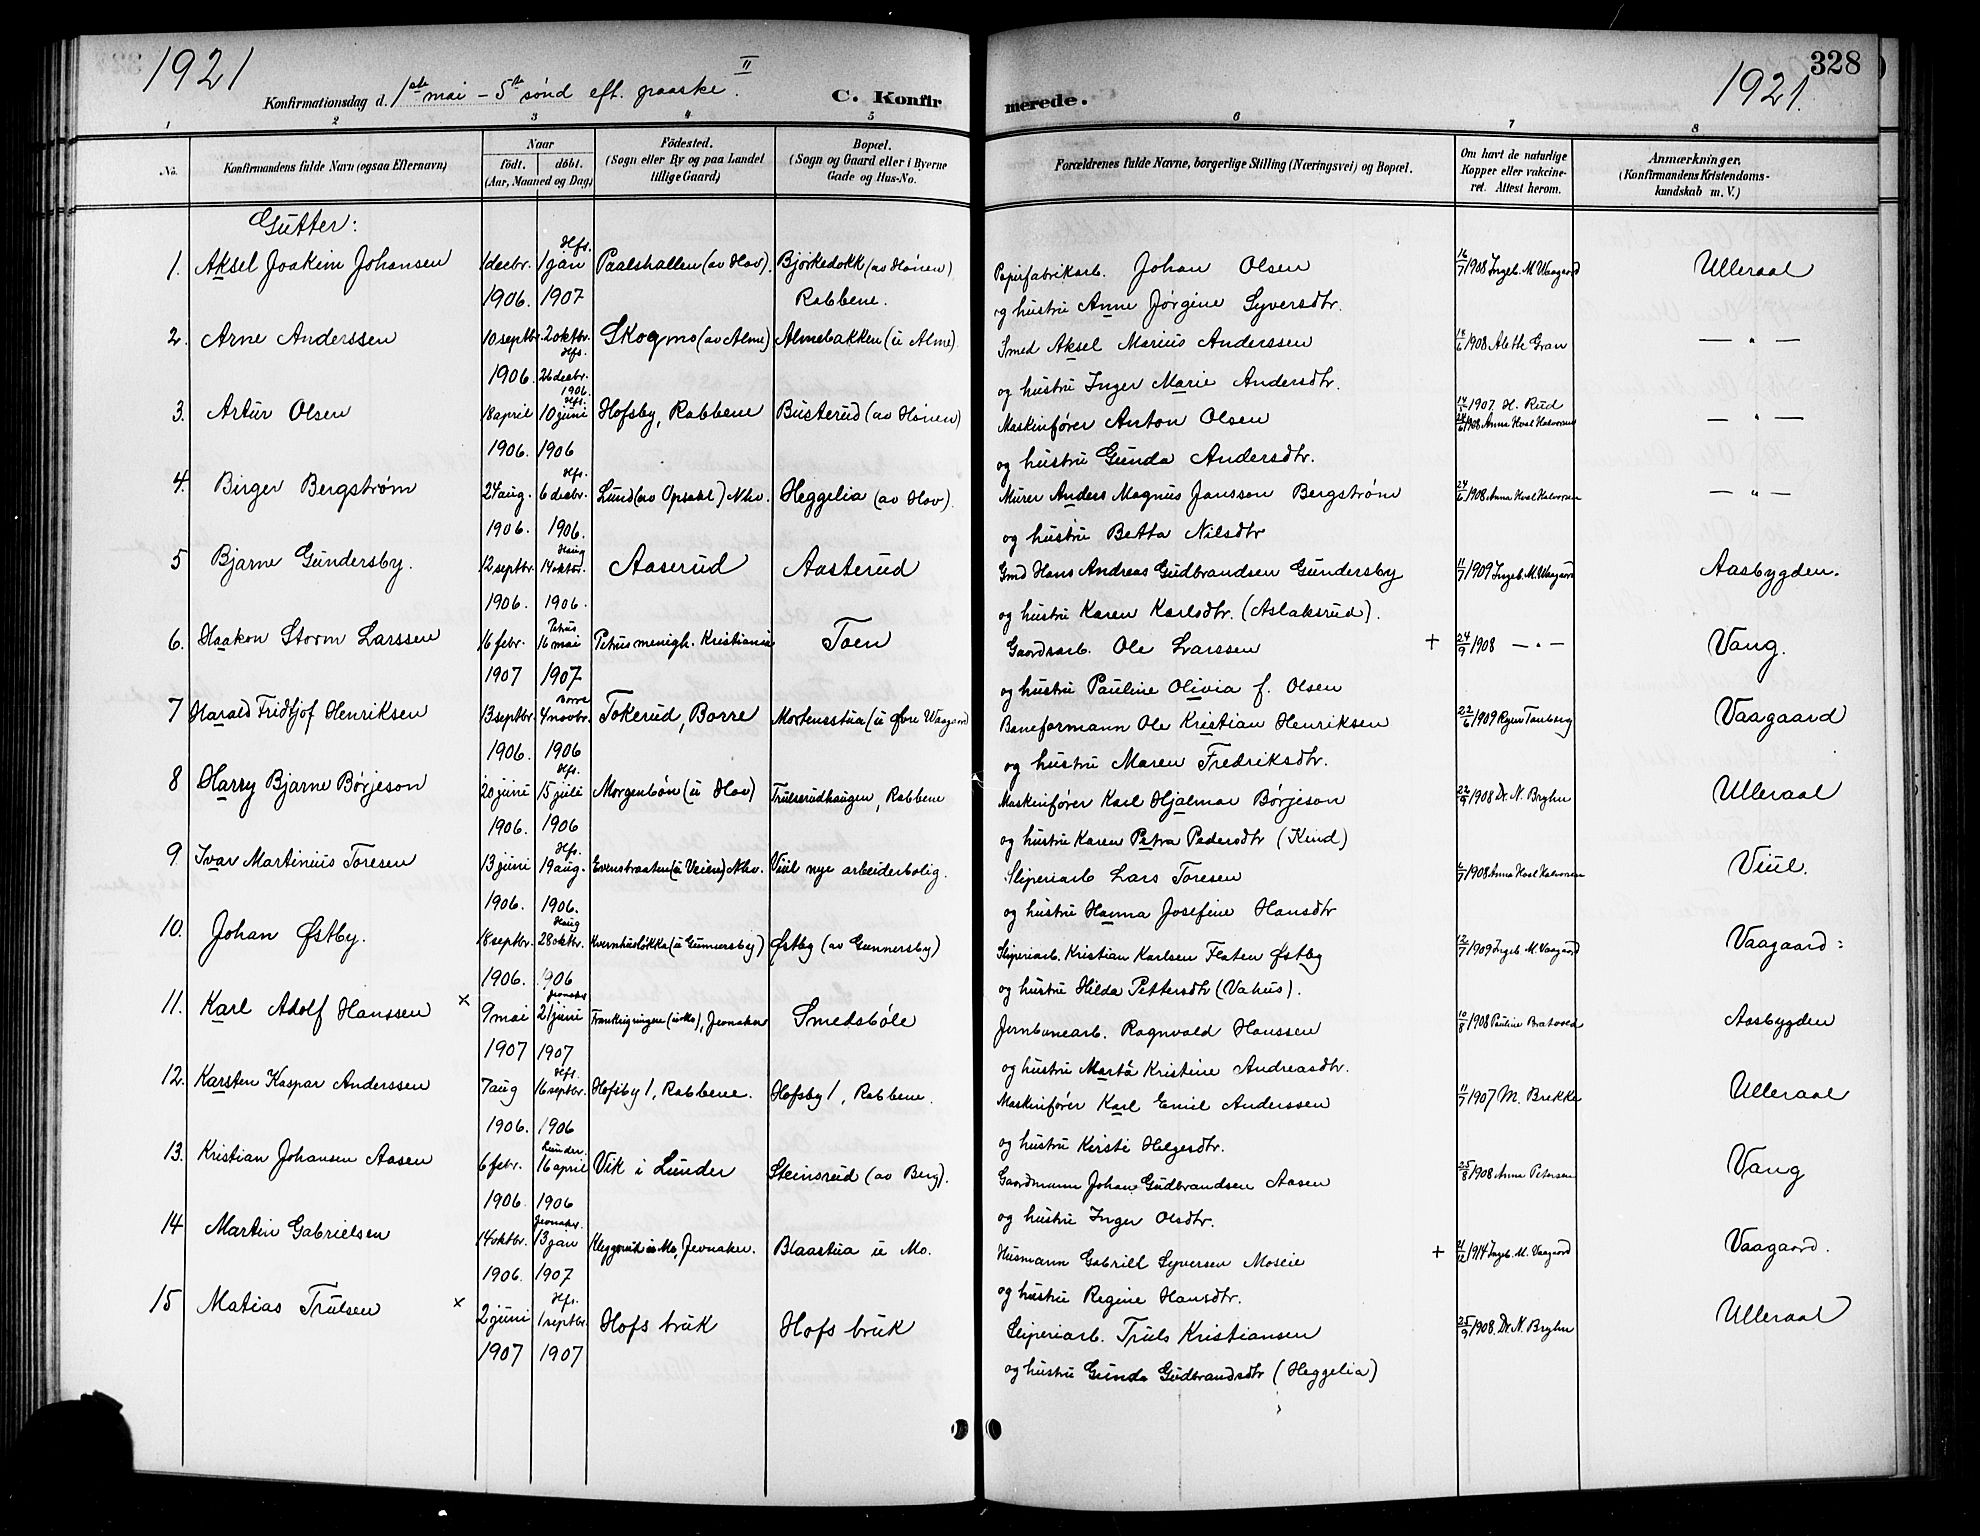 1921
328
1921.
II
Konfirmationsdag d. 1ste mai – 5te sønd eft. paaske.
C. Konfirmerede.
1 2 3 4 5 6 7 8
No.
Konfirmandens fulde Navn (ogsaa Efternavn)
Naar
födt. döbt.
(Aar, Maaned og Dag)
Födested.
(Sogn eller By og paa Landet tillige Gaard)
Bopæl.
(Sogn og Gaard eller i Byerne Gade og Hus-No.
Forældrenes fulde Navne, borgerlige Stilling (Næringsvei) og Bopæl.
Om havt de naturlige Kopper eller vakcineret. Attest herom.
Anmærkninger,
(Konfirmandens Kristendomskundskab m. V.)
Gutter:
1. Aksel Joakim Johansen 1 decbr. 1906. Hfs. 1 jan 1907 Paalshallen (av Hov). Bjørkedokk (av Hönen) Rabbene. Papirfabrikarb. Johan Olsen 16/7 1908 Ingeb. M. Waagaard Ulleraal
og hustru Anne Jørgine Syversdtr.
2. Arne Anderssen 10 septbr. 1906. 2 oktbr. Hfs. 26 decbr. 1906. Skogmo (av Alme) Almebakken (u Alme). Smed Aksel Marius Anderssen 18/6 1908 Aleth Gran — " —
og hustru Inger Marie Andersdtr.
3. Artur Olsen 18 april 1906. Hfs. 10 juni 1906 Hofsby, Rabbene Busterud (av Hönen) Maskinfører Anton Olsen 1907. H. Rud 24/6 1908 Anna Hval Halvorsen — " —
og hustru Gunda Andersdtr.
4. Birger Bergstrøm 24 aug. 1906. Hfs. 6 decbr. 1906. Lund (av Opsahl) Nhv. Heggelia (av Hov). Murer Anders Magnus Jansson Bergstrøm 24/6 1908 Anna Hval Halvorsen — " —
og hustru Betta Nilsdtr
5 Bjarne Gundersby. 12 septbr. 1906. Haug 14 oktbr. 1906. Aaserud Aasterud Gmd Hans Andreas Gudbrandsen Gundersby 11/7 1909 Ingeb. M. Waagaard Aasbygden.
og hustru Karen Karlsdtr. (Aslaksrud).
6. Haakon Storm Larssen 16 febr. 1907 Petrus 16 mai 1907. Petrus menigh. Kristiania Toen Gaardsarb. Ole Larssen + 24/9 1908 — " — Vang.
og hustru Pauline Olivia f. Olsen
7 Harald Fridtjof Henriksen 13 septbr. 1906. Borre 4 novbr. 1906 Tokerud, Borre Mortensstua (u Øvre Waagaard Baneformann Ole Kristian Henriksen 22/6 1909 Vaagaard
og hustru Maren Fredriksdtr.
8 Harry Bjarne Børjeson 20 juni 1906. Hfs. 15 juli 1906 Morgenbön (u Hov) Trulserudhaugen, Rabbene Maskinfører Karl Hjalmar Børjeson 22/9 1908 Dr. N. Bryhn Ulleraal
og hustru Karen Petra Pedersdtr (Kind)
9. Ivar Martinius Toresen 13 juni 1906. Hfs. 19 aug. 1906. Evensbraaten (u Veien) Nhv. Viul nye arbeiderbolig. Sliperiarb Lars Toresen 1908 Anna Hval Halvorsen Viul.
og hustru Hanna Josefine Hansdtr
10. Johan Østby. 18 septbr. 1906. Haug 28 oktbr. 1906 Kvernhusløkka (u Gunnersby) Østby (av Gunnersby) Sliperiarb. Kristian Karlsen Flaten Østby 12/7 1909 Ingeb. M. Vaagaard Vaagaard:
og hustru Hilda Pettersdtr (Vahus).
11. Karl Adolf Hanssen × 9 mai 1907 Jevnaker 21 juni 1907 Smedsböle Jernbanearb. Ragnvald Hanssen 10/8 1908 Pauline Bratvold Aasbygden
og hustru Marta Kristine Andreasdtr.
12. Karsten Kaspar Anderssen 7 aug 1906. Hfs. 16 septbr. 1906 Hofsby 1, Rabbene. Hofsby 1, Rabbene. Maskinfører Karl Emil Anderssen 11/7 1907 M. Brekke Ulleraal
og hustru Kirsti Helgesdtr.
13. Kristian Johansen Aasen 6 febr. 1906. Lunder 16 april 1906 Vik i Lunder Steinsrud (av Berg). Gaardmann Johan Gudbrandsen Aasen 25/8 1908 Anna Petersen Vang
og hustru Inger Olsdtr.
14 Martin Gabrielsen 14 oktbr. 1906. Jevnaker 13 jan 1907 Mo, Jevnaker. Blaastua u Mo. Husmann Gabriel Syversen Moseie + 1914 Ingeb. M. Vaagaard Vaagaard.
og hustru Regine Hansdtr.
15 Matias Trulsen × 2 juni 1907 Hfs. 1 septbr. 1907 Hofs bruk Hofs bruk Sliperiarb. Truls Kristiansen 25/9 1908. Dr. N. Bryhn Ulleraal
og hustru Gunda Gudbrandsdtr (Heggelia)